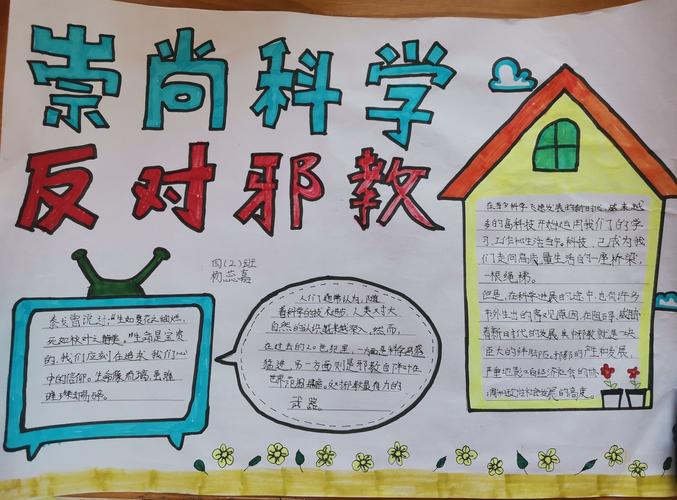 崇尚科学
反对邪教
四(2)班
杨蕊嘉
泰戈曾说过:"生如夏花之灿烂,
死如秋叶之静美。"生命是宝贵
的,我们应刻在追求我们心
中的信仰。生命
人们
着科学的技术进步,人类对大
自然的认识越来越深入。然而,
在过去的20世纪里,一方面是科学突飞
猛进,另一方面则是邪教自
世界范围 最有力的
武器。
在当今科学飞速发展的新时代,越来越
多的高科技开始应用我们了的了学
习、工作和生活当中。科技,已成为我
们走向高质量生活的一座桥梁,
一根绳梯。
但是,在科学进展的途中,也有许多
书外生出的客观原因,在阻碍、威胁
着新时代的发展。其中邪教就是一块
巨大的绊脚石。邪教的产生和发展,
严重地影 经济社会的
社会发展的高度。